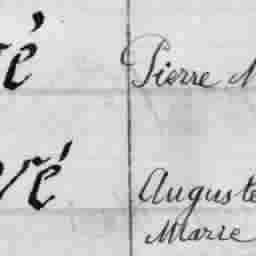 é Pierre M
vé Auguste
Marie